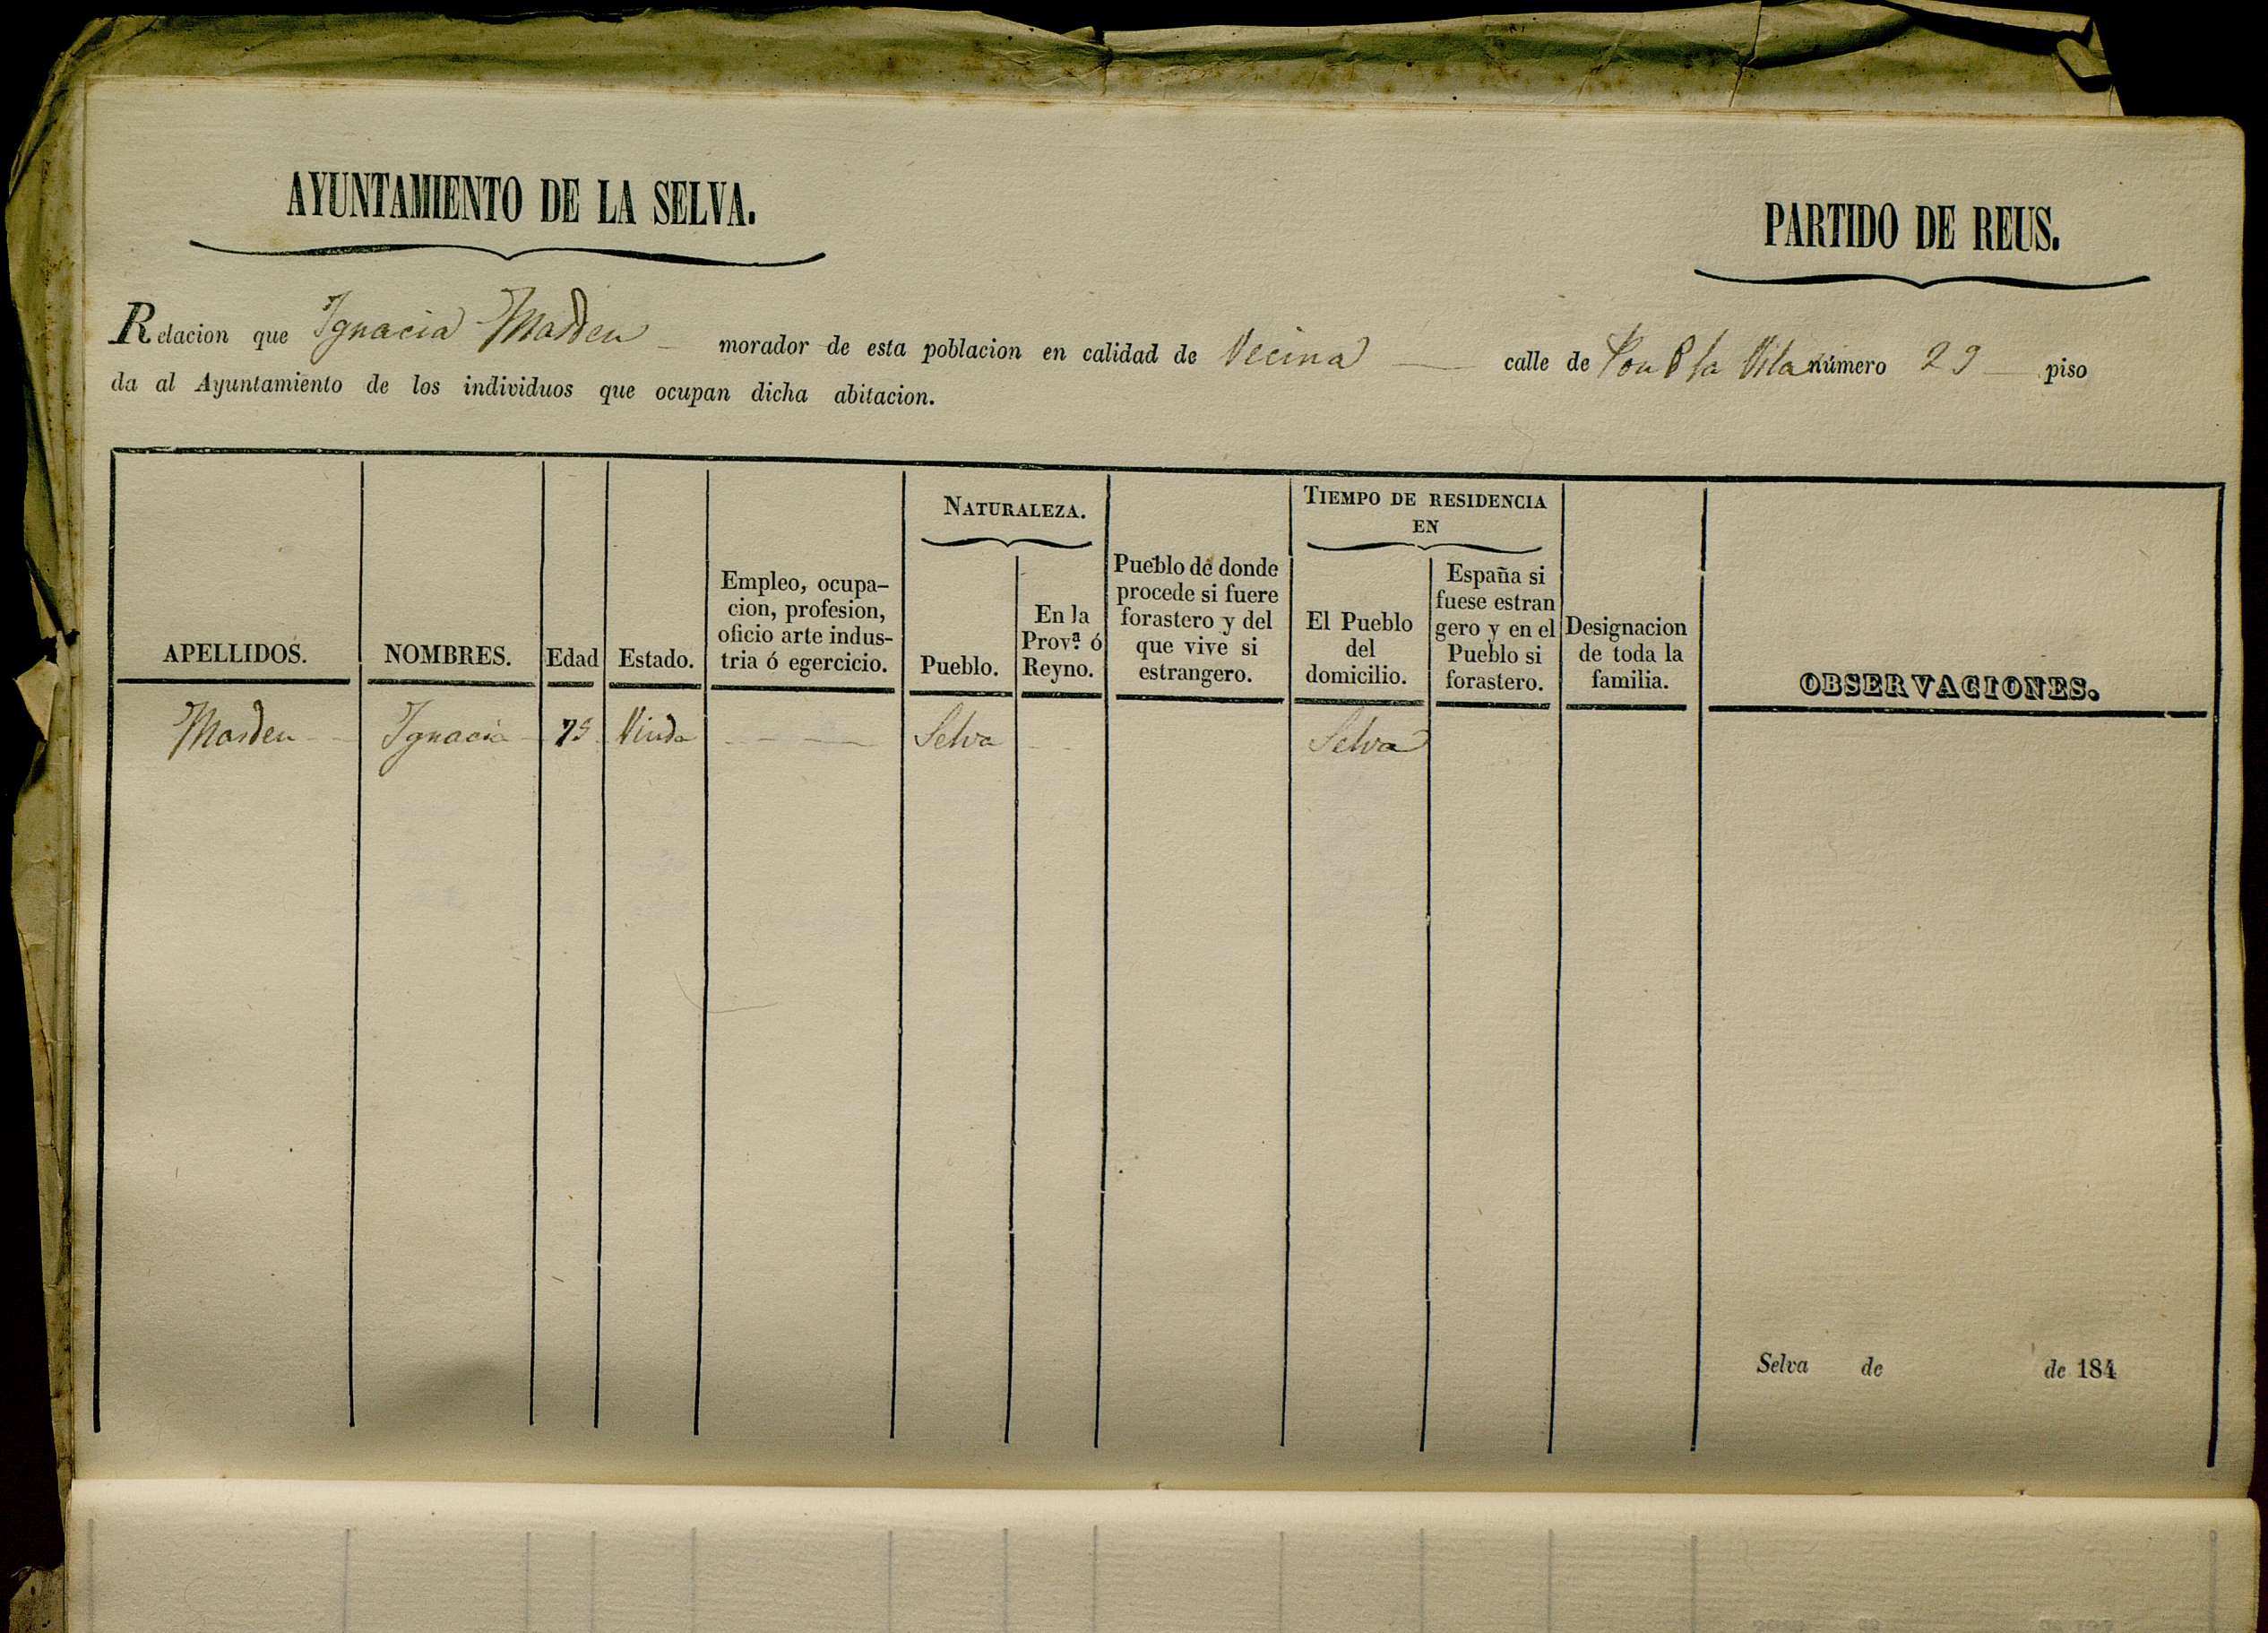 AYUNTAMIENTO DE LA SELVA.
PARTIDO DE REUS.
Relacion que Ignacia Masdeu morador de esta poblacion en calidad de Vecina calle de la Vila número 29 piso
da al Ayuntamiento de los individuos que ocupan dicha abitacion.
NATURALEZA.
TIEMPO DE RESIDENCIA
EN
APELLIDOS.
NOMBRES.
Edad
Estado.
Empleo, ocupa-
cion, profesion,
oficio arte indus-
tria ó egercicio.
Pueblo.
En la
Prov.ª ó
Reyno.
Pueblo de donde
procede si fuere
forastero y del
que vive si
estrangero.
El Pueblo
del
domicilio.
España si
fuese estran
gero y en el
Pueblo si
forastero.
Designacion
de toda la
familia.
OBSERVACIONES.
Masdeu Ignacia Viuda Selva Selva
Selva de de 184